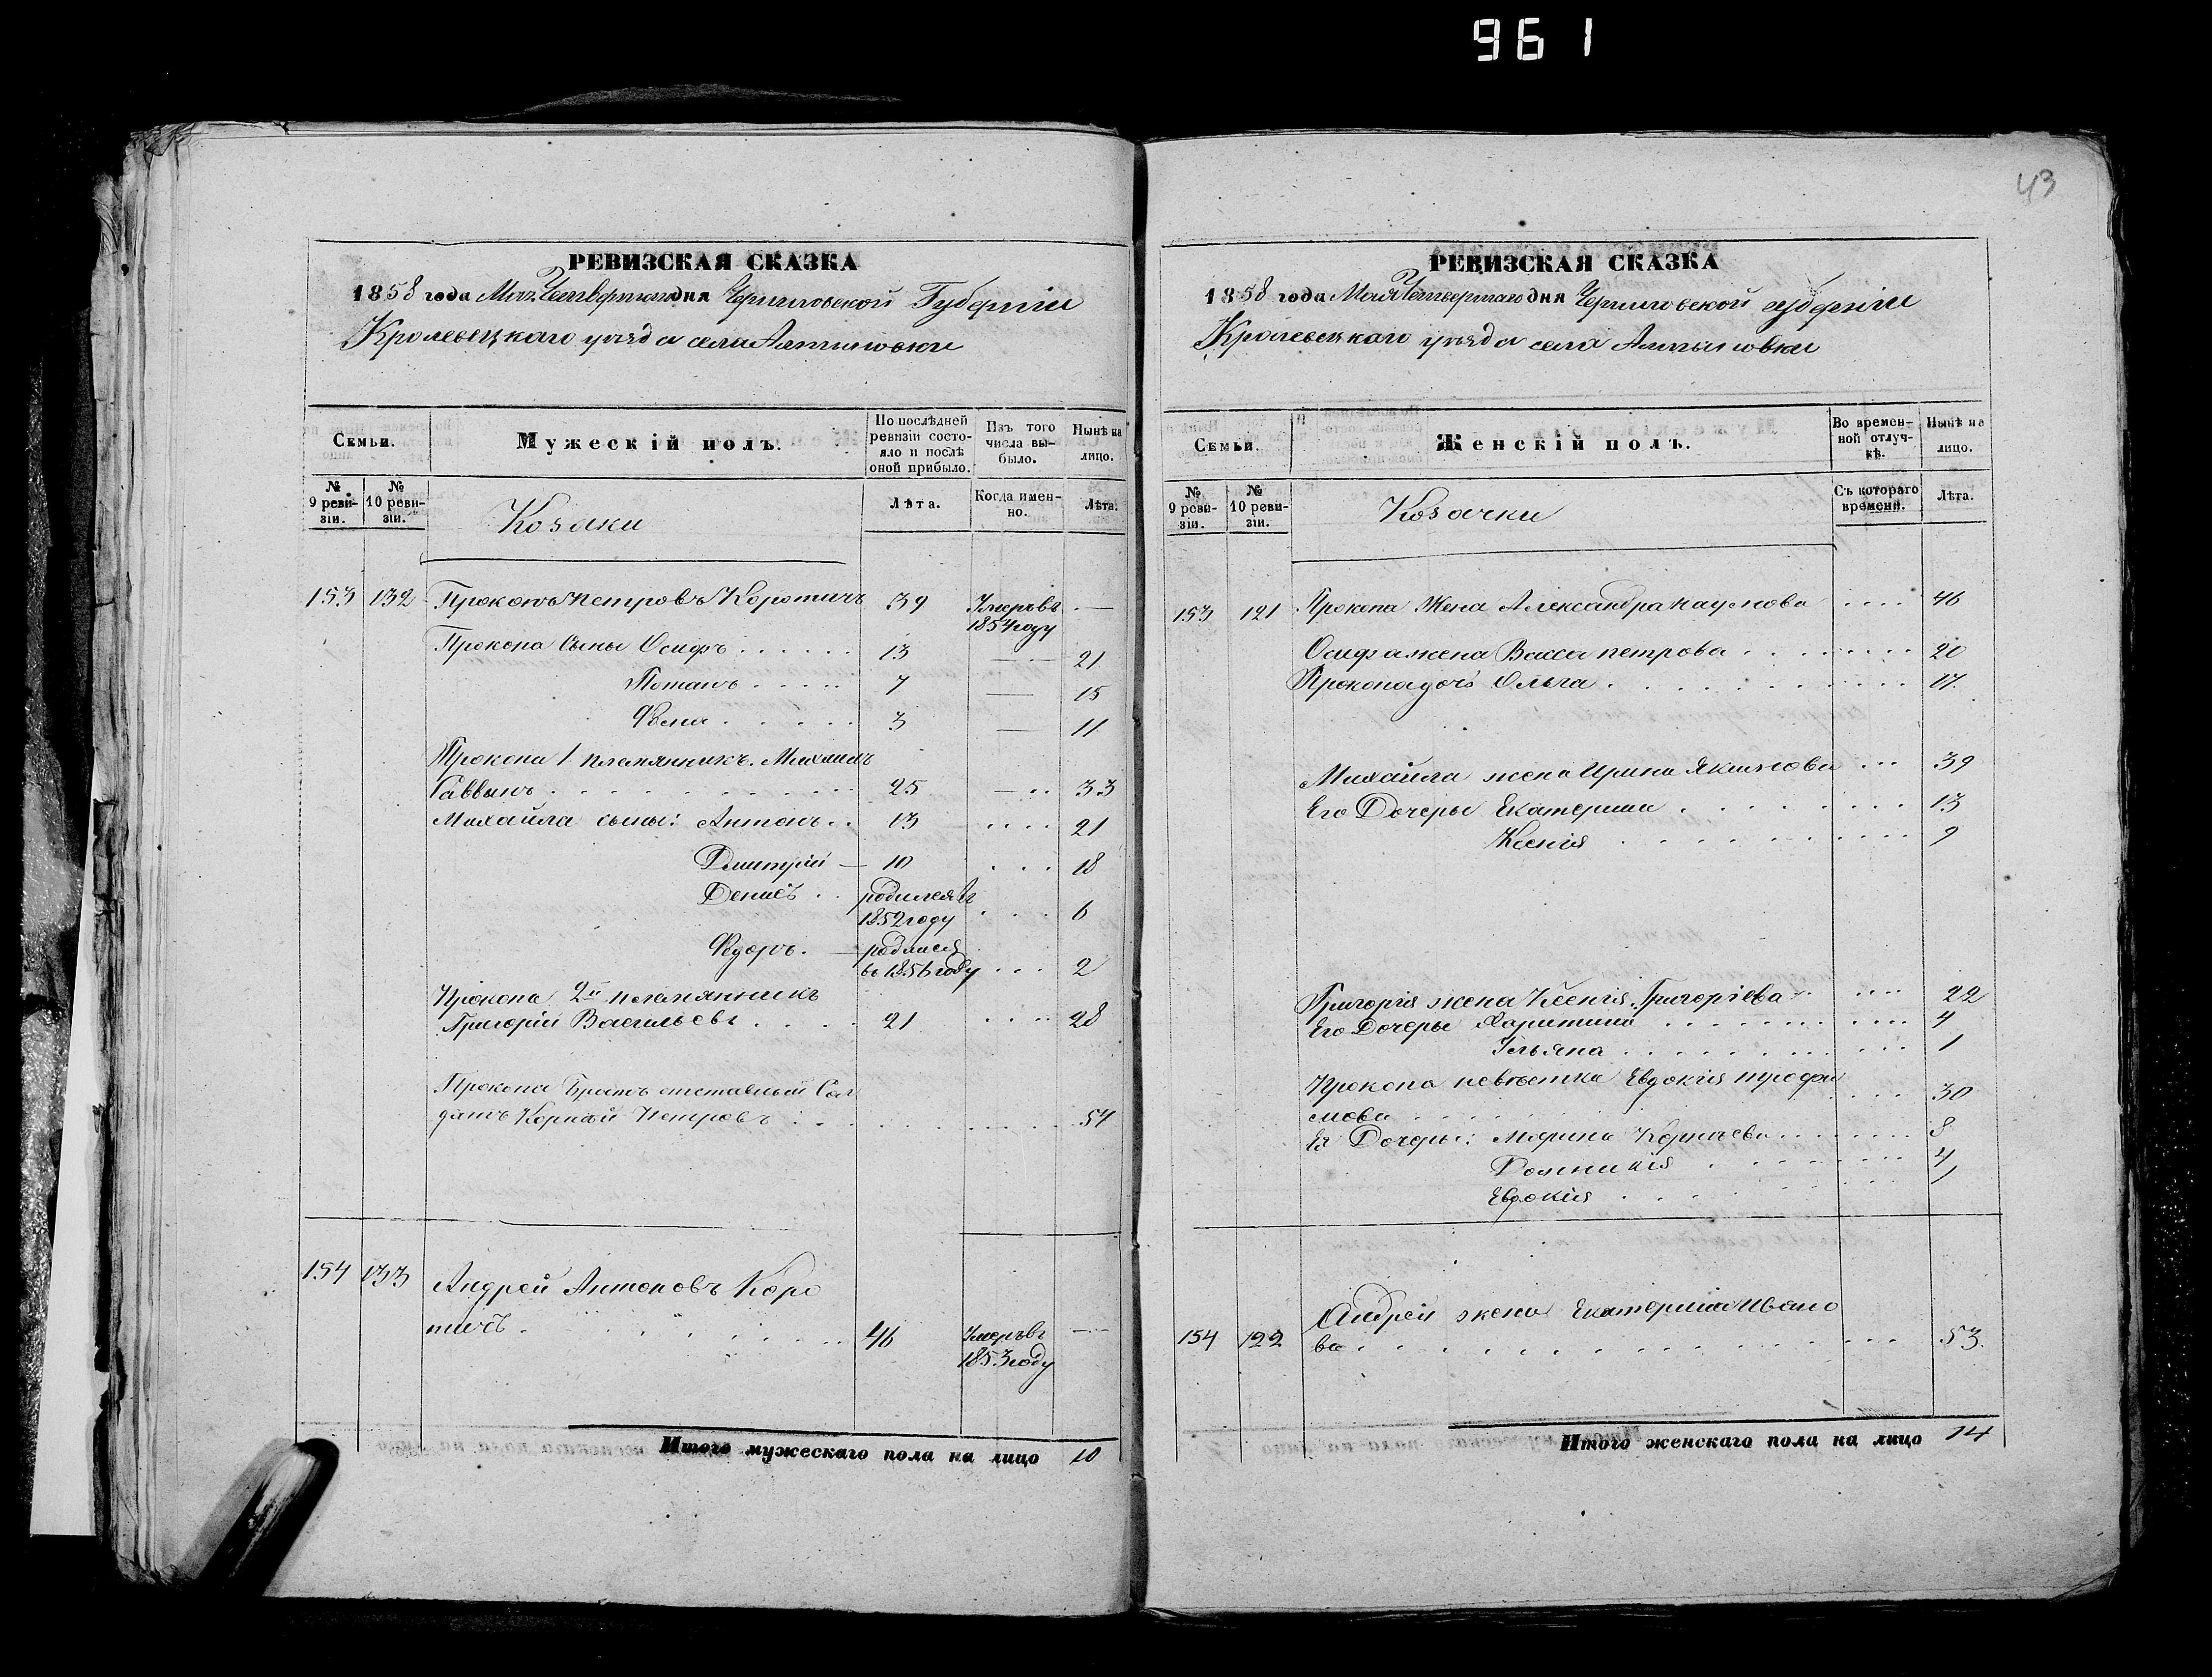 961
43
РЕВИЗСКАЯ СКАЗКА
1858 года Мая Четвертаго дня Черниговской Губерніи
Кролевецкаго уѣзда села Алтыновки
Семьи.
Мужескій полъ.
По послѣдней ревизіи состояло и послѣ оной прибыло.
Изъ того числа выбыло.
Нынѣ на лицо.
№ 9 ревизіи.
№ 10 ревизіи.
Козаки
Лѣта.
Когда именно.
Лѣта.
153 132 Прокопъ Петровъ Коротичъ 39 Умеръ въ 1854 году —
Прокопа Сыны Осифъ 13 — 21
Потапъ 7 — 15
Фома 3 — 11
Прокопа 1 племянникъ Михаилъ
Саввинъ 25 — 33
Михайла сыны: Антонъ 13 21
Дмитрій — 10 18
Денисъ родился въ 1852 году 6
Федоръ — родился въ 1856 году 2
Прокопа 2й племянникъ
Григорій Васильевъ 21 28
Прокопа Братъ отставный Сол
датъ Корнѣй Петровъ 54
154 133 Андрей Антоновъ Коро
тичъ 46 Умеръ въ 1853 году —
Итого мужескаго пола на лицо 10
РЕВИЗСКАЯ СКАЗКА
1858 года Мая Четвертаго дня Черниговской губерніи
Кролевецкаго уѣзда села Алтыновки
Семьи.
Женскій полъ.
Во временной отлучкѣ.
Нынѣ на лицо.
№ 9 ревизіи.
№ 10 ревизіи.
Козачки
Съ котораго времени.
Лѣта.
153 121 Прокопа Жена Александра Наумова 46
Осифа жена Васса петрова 20
Прокопа дочь Ольга 17.
Михайла жена Ирина Якимова 39
Его Дочеры Екатерина 13
Ксенія 9
Григорія жена Ксенія Григоріева 22
Его Дочеры Харитина 4
Ульяна 1
Прокопа невѣстка Евдокія трофи
мова 30
Её Дочеры: Марина Корнѣева 8
Домникія 4
Евдокія 1
154 122 Андрея жена Екатерина Ивано
ва 53.
Итого женскаго пола на лицо 14